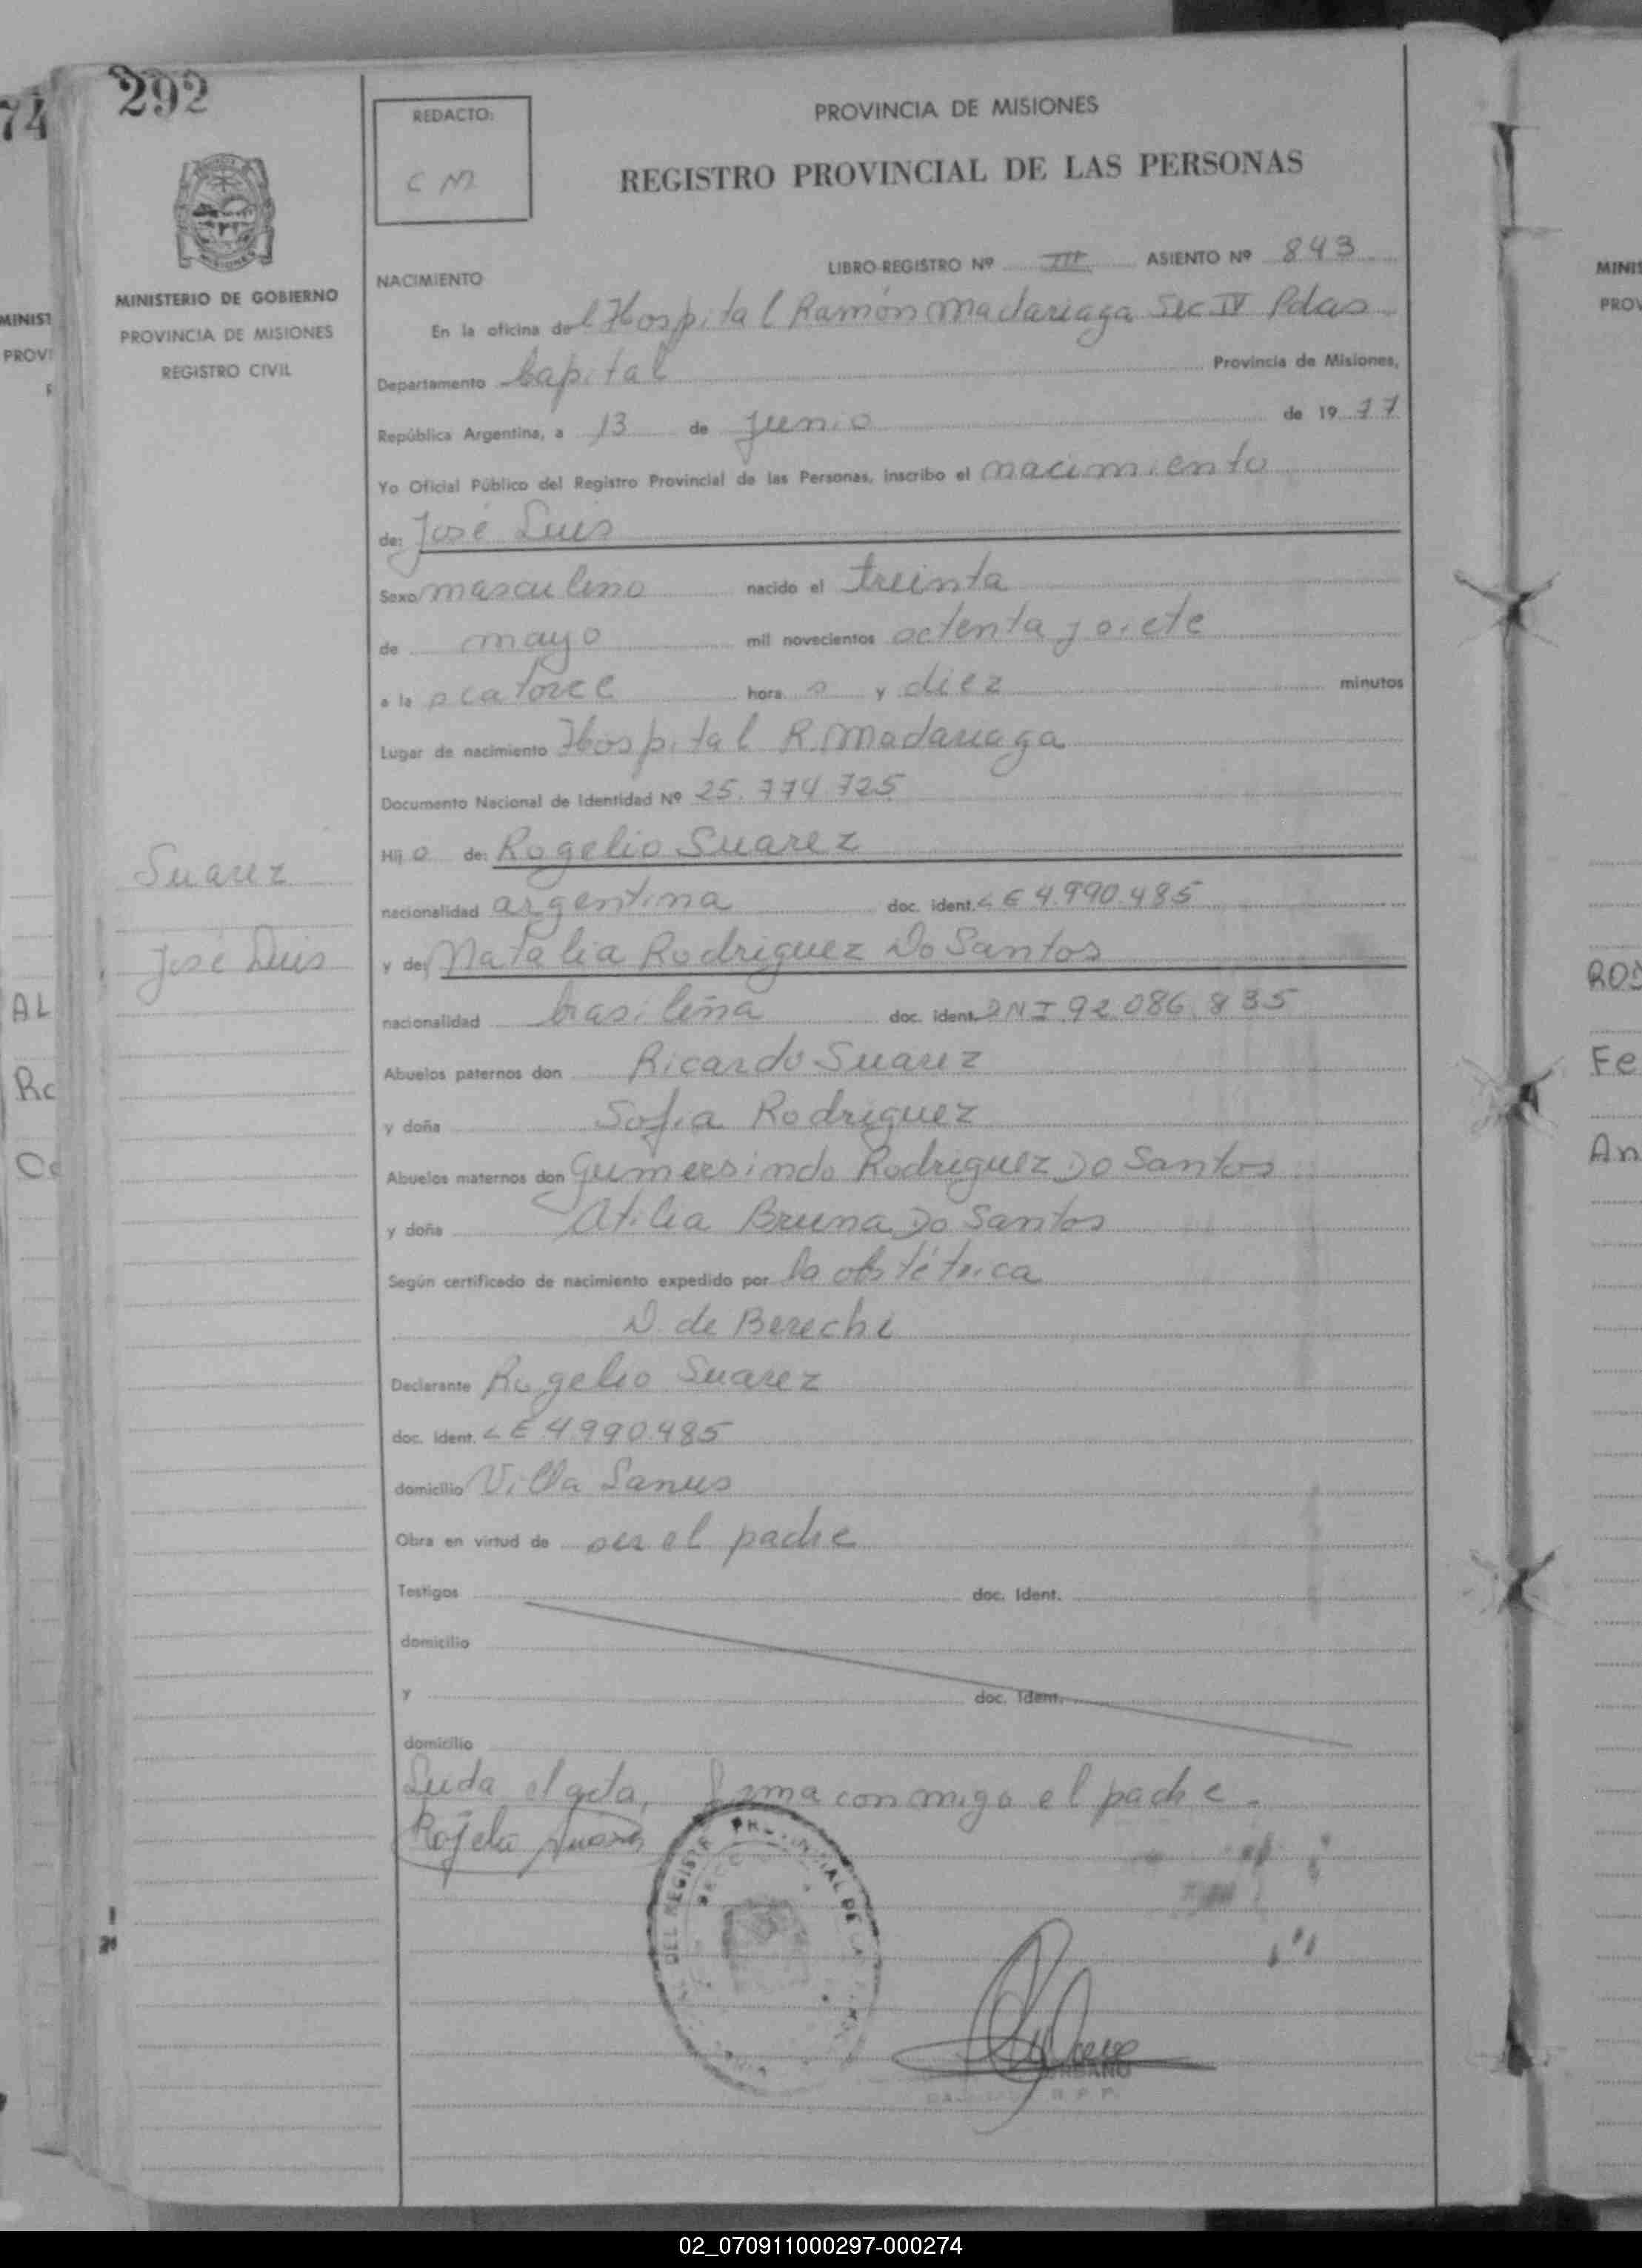 74
292
REDACTO:
C M
PROVINCIA DE MISIONES
REGISTRO PROVINCIAL DE LAS PERSONAS
MINISTERIO DE GOBIERNO
PROVINCIA DE MISIONES
REGISTRO CIVIL
LIBRO-REGISTRO Nº III ASIENTO Nº 843
NACIMIENTO
En la oficina del Hospital Ramón Madariaga Sec IV Pdas
Departamento Capital Provincia de Misiones,
República Argentina, a 13 de Junio de 19 77
Yo Oficial Público del Registro Provincial de las Personas, inscribo el nacimiento
de: José Luis
Sexo masculino nacido el treinta
de mayo mil novecientos setenta y siete
a la s catorce hora s y diez minutos
Lugar de nacimiento Hospital R. Madariaga
Documento Nacional de Identidad Nº 25.774.725
Hij o de: Rogelio Suarez
Suarez
nacionalidad argentina doc. ident. LE 4.990.485
José Luis
y de: Natalia Rodriguez Do Santos
nacionalidad brasileña doc. ident. DNI 92.086.835
Abuelos paternos don Ricardo Suarez
y doña Sofia Rodriguez
Abuelos maternos don Gumersindo Rodriguez Do Santos
y doña Atilia Bruna Do Santos
Según certificado de nacimiento expedido por la obstétrica
D. de Berechi
Declarante Rogelio Suarez
doc. ident. LE 4990.485
domicilio Villa Lanus
Obra en virtud de ser el padre
Testigos doc. ident.
domicilio
y doc. ident.
domicilio
Leida el acta, firma conmigo el padre.
Rojelio Suarez
DEL REGISTR PROVINCIAL DE LA
MINIST
PROVI
AL
Rc
MINIS
PROV
Fe
An
02_070911000297-000274